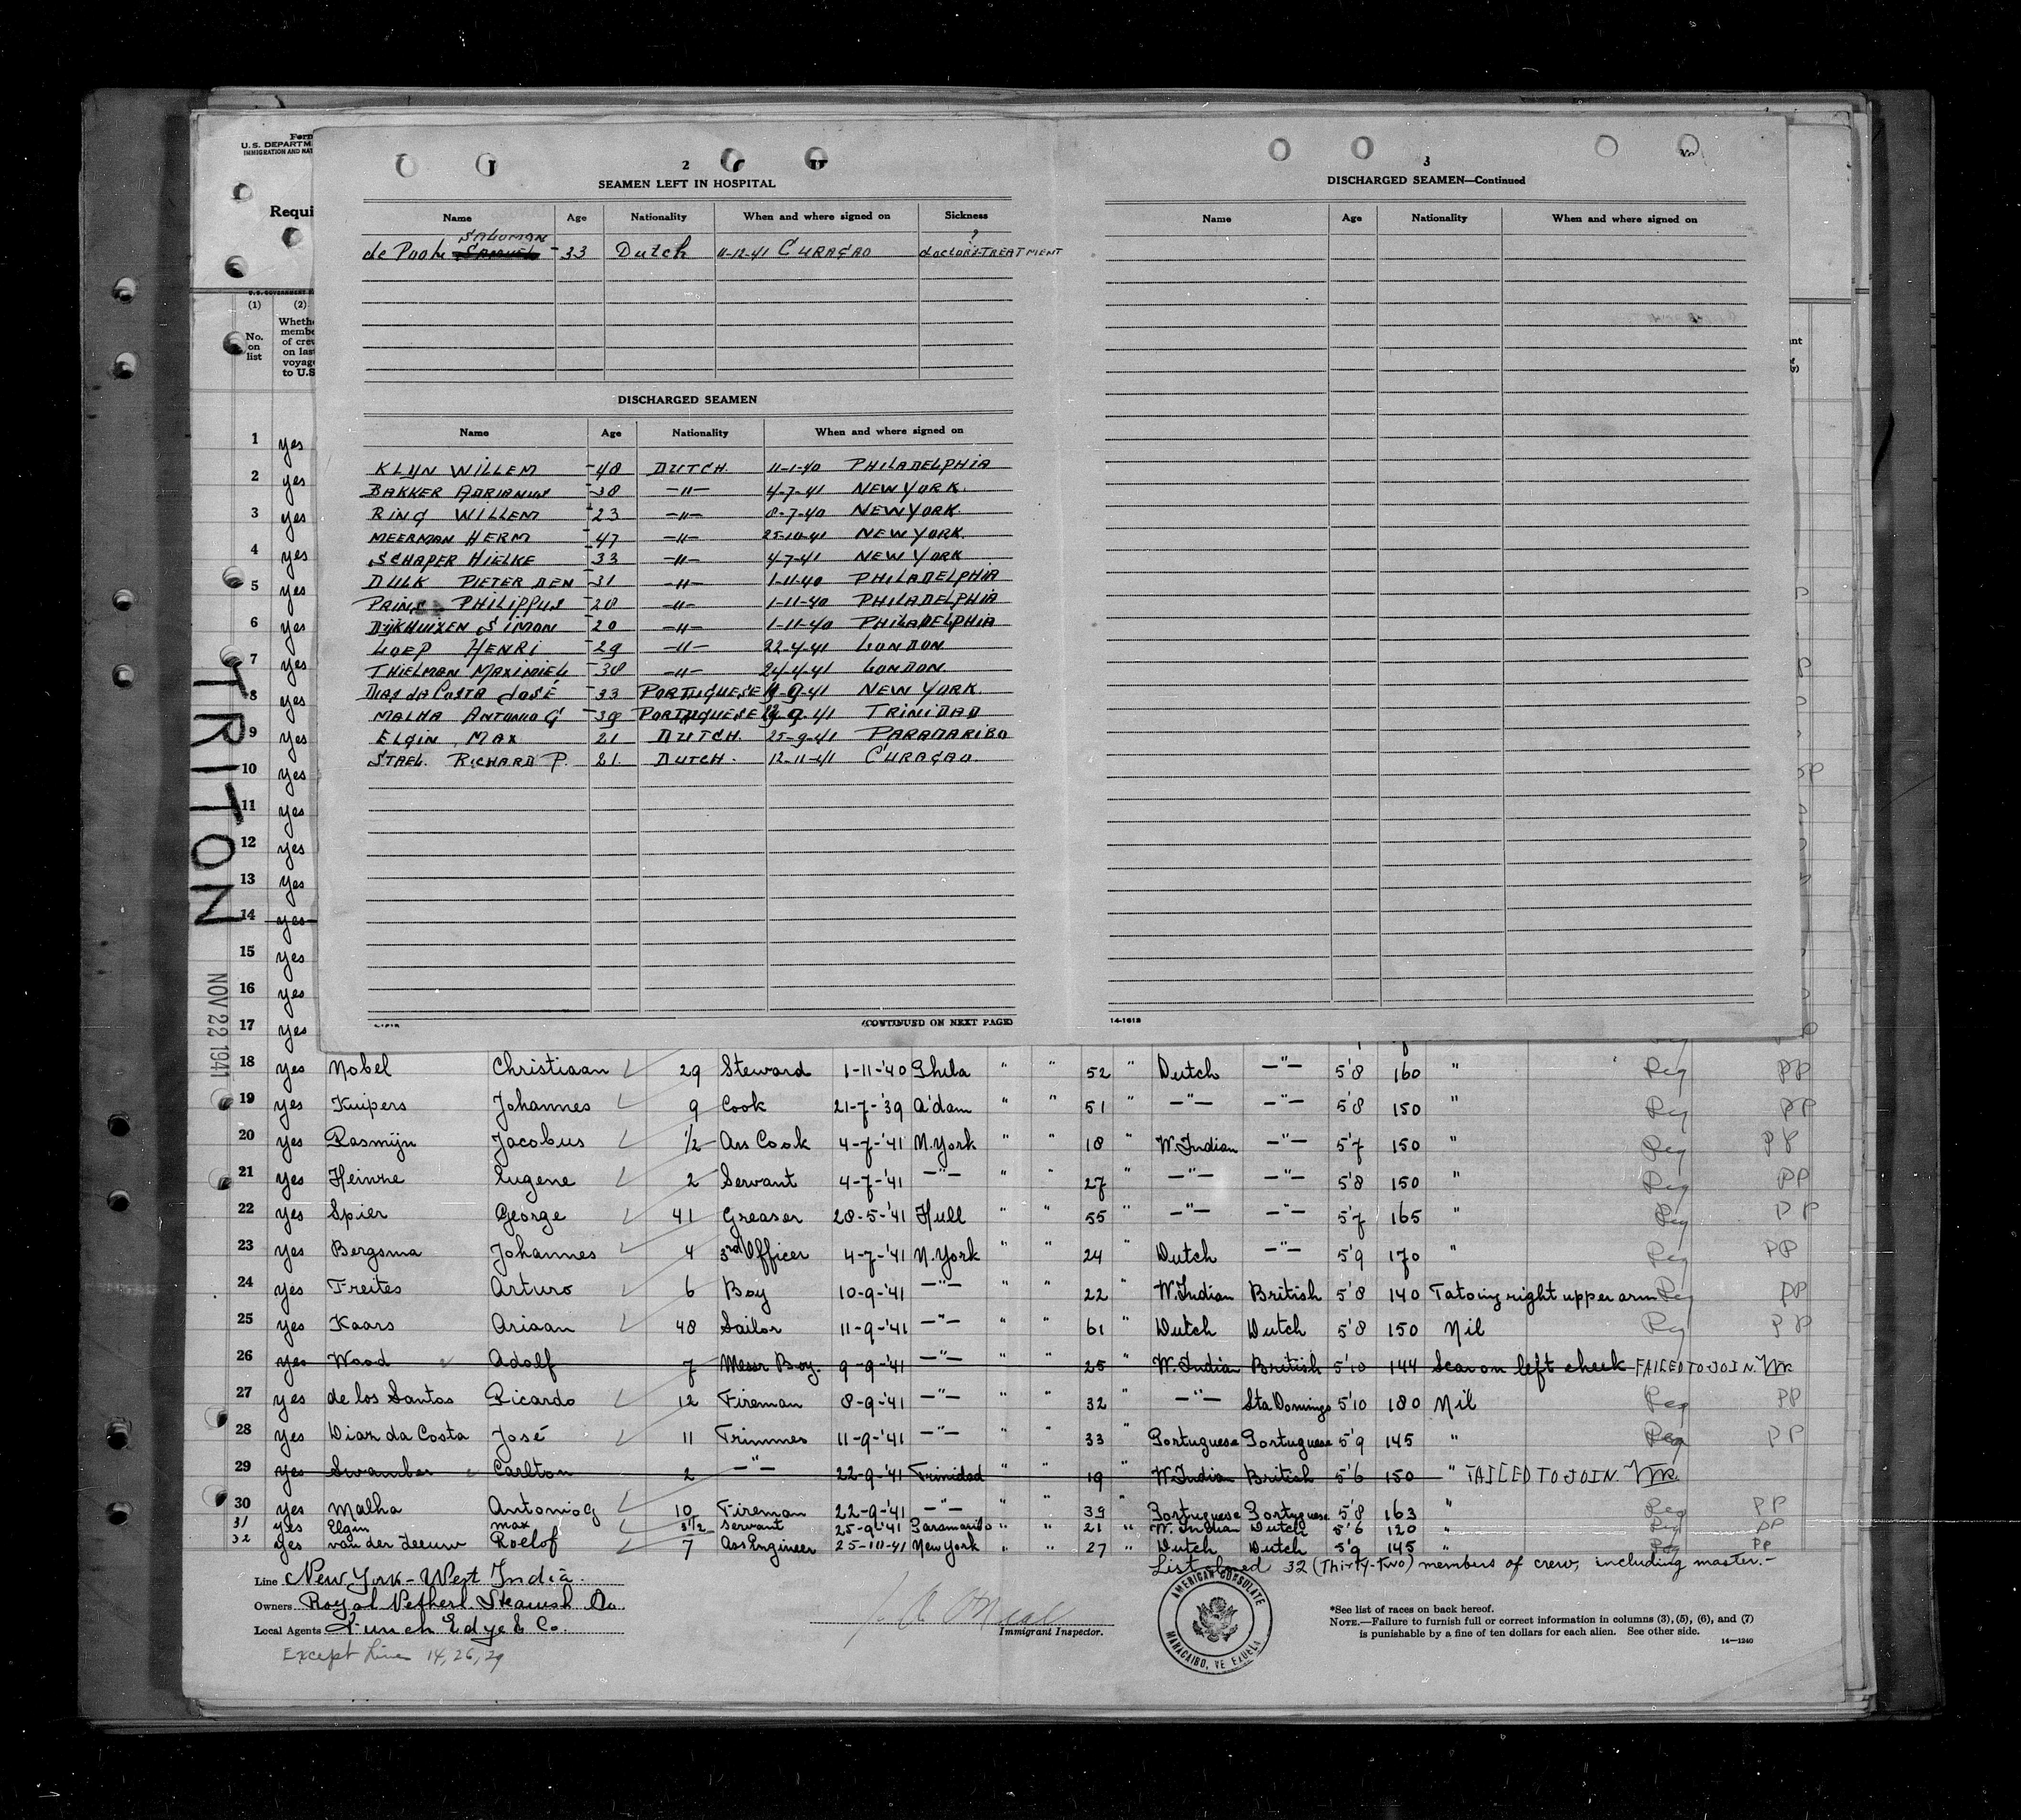 Form
U.S. DEPARTM
IMMIGRATION AND NAT
Requi
2
SEAMEN LEFT IN HOSPITAL
Name Age Nationality When and where signed on Sickness
SALOMAN ?
de Poole SAMUEL 33 Dutch 11-12-41 CURAÇAO doctors-TREATMENT
DISCHARGED SEAMEN
Name Age Nationality When and where signed on
KLYN WILLEM 48 DUTCH. 11-1-40 PHILADELPHIA
BAKKER ADRIANUS 38 -"- 4-7-41 NEW YORK.
RING WILLEM 23 -"- 8-7-40 NEW YORK.
MEERMAN HERM 47 -"- 25-10-41 NEW YORK.
SCHAPER HIELKE 33 -"- 4-7-41 NEW YORK
DULK PIETER DEN 31 -"- 1-11-40 PHILADELPHIA
PRINS PHILIPPUS 28 -"- 1-11-40 PHILADELPHIA
DIJKHUIZEN SIMON 20 -"- 1-11-40 PHILADELPHIA
LOEP HENRI 29 -"- 22-4-41 LONDON
THIELMAN MAXIMIEL 38 -"- 24-4-41 LONDON
DIAS da COSTA JOSÉ 33 PORTUGUESE 9-41 NEW YORK.
MALHA ANTONIO G 39 PORTUGUESE 9-41 TRINIDAD
ELGIN MAX 21 DUTCH. 25-9-41 PARAMARIBO
STAEL. RICHARD P. 21. DUTCH. 12-11-41 CURAÇAO.
(CONTINUED ON NEXT PAGE)
3
DISCHARGED SEAMEN—Continued
Name Age Nationality When and where signed on
14-1618
(1) (2)
No. on list
Wheth
membe
of crew
on last
voyage
to U.S
TRITON
NOV 22 1941
1 yes
2 yes
3 yes
4 yes
5 yes
6 yes
7 yes
8 yes
9 yes
10 yes
11 yes
12 yes
13 yes
14 yes
15 yes
16 yes
17 yes
18 yes Nobel Christiaan 29 Steward 1-11-'40 Phila " " 52 " Dutch -"- 5'8 160 " Reg PP
19 yes Kuipers Johannes 9 Cook 21-7-'39 A'dam " " 51 " -"- -"- 5'8 150 " Reg PP
20 yes Rasmijn Jacobus 1/2 Ass Cook 4-7-'41 N.York " " 18 " W.Indian -"- 5'7 150 " Reg PP
21 yes Heinre Eugene 2 Servant 4-7-'41 -"- " " 27 " -"- -"- 5'8 150 " Reg PP
22 yes Spier George 41 Greaser 28-5-'41 Hull " " 55 " -"- -"- 5'7 165 " Reg PP
23 yes Bergsma Johannes 4 3rd Officer 4-7-'41 N.York " " 24 " Dutch -"- 5'9 170 " Reg PP
24 yes Freites Arturo 6 Boy 10-9-'41 -"- " " 22 " W.Indian British 5'8 140 Tatoing right upper arm Reg PP
25 yes Kaars Ariaan 48 Sailor 11-9-'41 -"- " " 61 " Dutch Dutch 5'8 150 Nil Reg PP
26 yes Wood Adolf 7 Messr Boy. 9-9-'41 -"- " " 25 " W.Indian British 5'10 144 Scar on left cheek FAILED TO JOIN.
27 yes de los Santos Ricardo 12 Fireman 8-9-'41 -"- " " 32 " -"- Sta Domingo 5'10 180 Nil Reg PP
28 yes Diaz da Costa José 11 Trimmer 11-9-'41 -"- " " 33 Portuguese Portuguese 5'9 145 " Reg PP
29 yes Swamber Carlton 2 -"- 22-9-'41 Trinidad " " 19 " W.Indian British 5'6 150 " FAILED TO JOIN.
30 yes Malha Antonio G 10 Fireman 22-9-'41 -"- " " 39 " Portuguese Portuguese 5'8 163 " Reg PP
31 yes Elgin Max 3 1/2 Servant 25-9-'41 Paramaribo " " 21 " W. Indian Dutch 5'6 120 " Reg PP
32 yes van der Zeeuw Roelof 7 Ass Engineer 25-10-41 New York " " 27 " Dutch Dutch 5'9 145 " Reg PP
List closed 32 (Thirty-two) members of crew, including master.-
Line New York-West India.
Owners Royal Netherl. Steamsh Co.
Local Agents Funch Edye & Co.
Except Lines 14, 26, 29
Immigrant Inspector.
AMERICAN CONSULATE
MARACAIBO, VENEZUELA
*See list of races on back hereof.
NOTE.—Failure to furnish full or correct information in columns (3), (5), (6), and (7)
is punishable by a fine of ten dollars for each alien. See other side.
14—1240